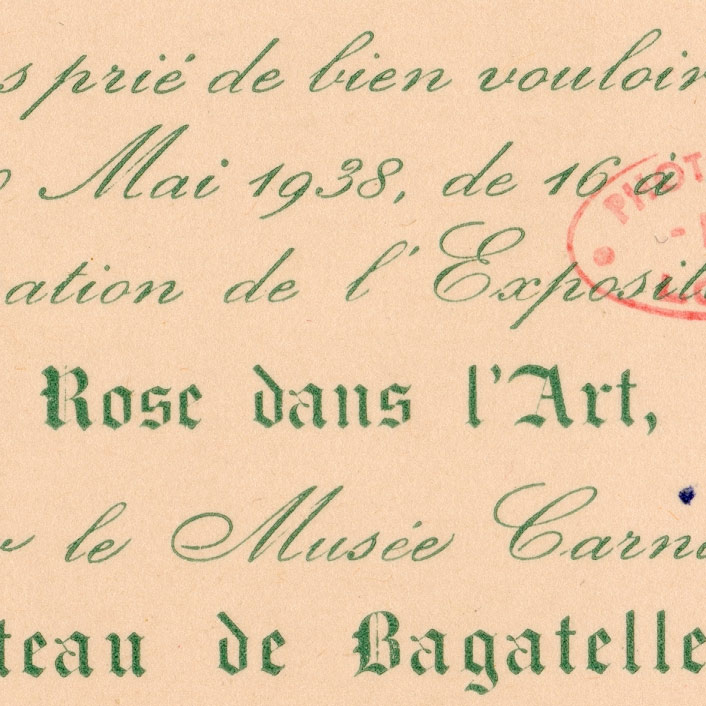 s prié de bien vouloir
Mai 1938, de 16 à
ation de l'Exposit
Rose dans l'Art,
r le Musée Carna
teau de Bagatelle
PHOT